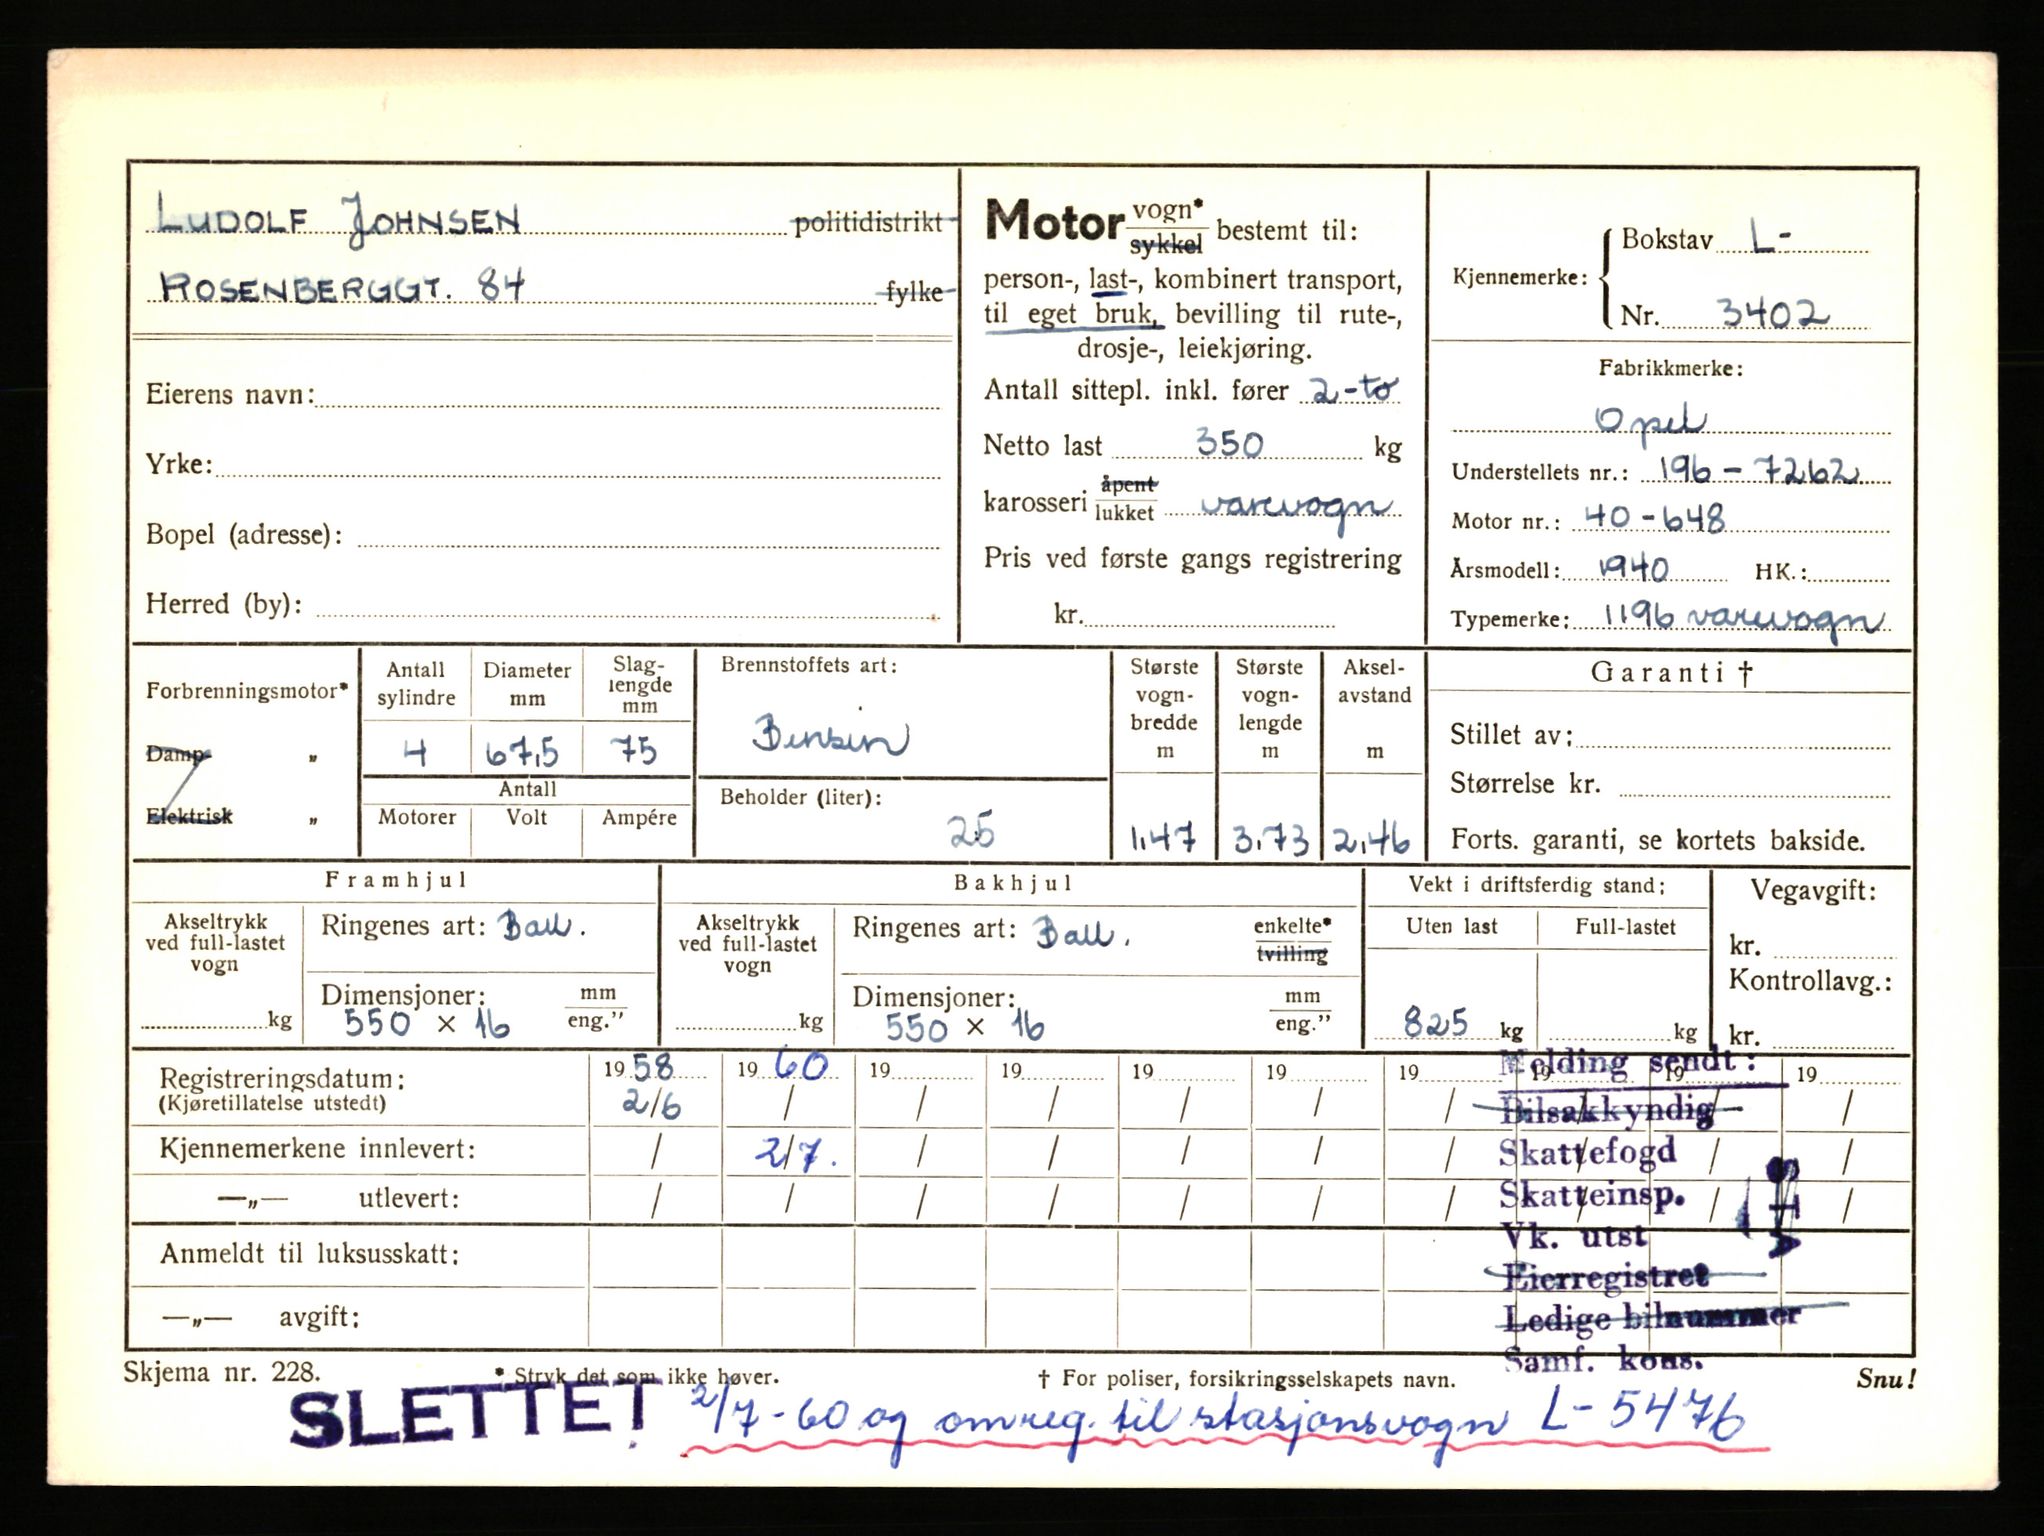 LUDOLF JOHNSEN politidistrikt
ROSENBERGGT. 84 fylke
Eierens navn:
Yrke:
Bopel (adresse):
Herred (by):
Motor vogn* sykkel bestemt til:
person-, last-, kombinert transport,
til eget bruk, bevilling til rute-,
drosje-, leiekjøring.
Antall sittepl. inkl. fører 2-to
Netto last 350 kg
karosseri åpent lukket varevogn
Pris ved første gangs registrering
kr.
Kjennemerke: Bokstav L-
Nr. 3402
Fabrikkmerke:
Opel
Understellets nr.: 196-7262
Motor nr.: 40-648
Årsmodell: 1940 HK.:
Typemerke: 1196 varevogn
Forbrenningsmotor*
Damp- „
Elektrisk „
Antall sylindre
4
Diameter mm
67,5
Slag-
lengde
mm
75
Antall
Motorer Volt Ampére
Brennstoffets art:
Bensin
Beholder (liter):
25
Største
vogn-
bredde
m
1,47
Største
vogn-
lengde
m
3,73
Aksel-
avstand
m
2,46
Garanti †
Stillet av:
Størrelse kr.
Forts. garanti, se kortets bakside.
Framhjul
Akseltrykk
ved full-lastet
vogn
kg
Ringenes art: Ball.
Dimensjoner: mm eng.”
550 × 16
Bakhjul
Akseltrykk
ved full-lastet
vogn
kg
Ringenes art: Ball. enkelte* tvilling
Dimensjoner: mm eng.”
550 × 16
Vekt i driftsferdig stand:
Uten last Full-lastet
825 kg kg
Vegavgift:
kr.
Kontrollavg.:
kr.
Registreringsdatum: 1958 1960 19 19 19 19 19 19 19 19
(Kjøretillatelse utstedt) 2/6 / / / / / / / / /
Kjennemerkene innlevert: / 2/7. / / / / / / / /
—„— utlevert: / / / / / / / / / /
Anmeldt til luksusskatt:
—„— avgift:
Melding sendt:
Bilsakkyndig
Skattefogd
Skatteinsp.
Vk. utst
Eierregistret
Ledige bilnummer
Samf. kons.
Skjema nr. 228. * Stryk det som ikke høver. † For poliser, forsikringsselskapets navn. Snu!
SLETTET 2/7-60 og omreg. til stasjonsvogn L-5476